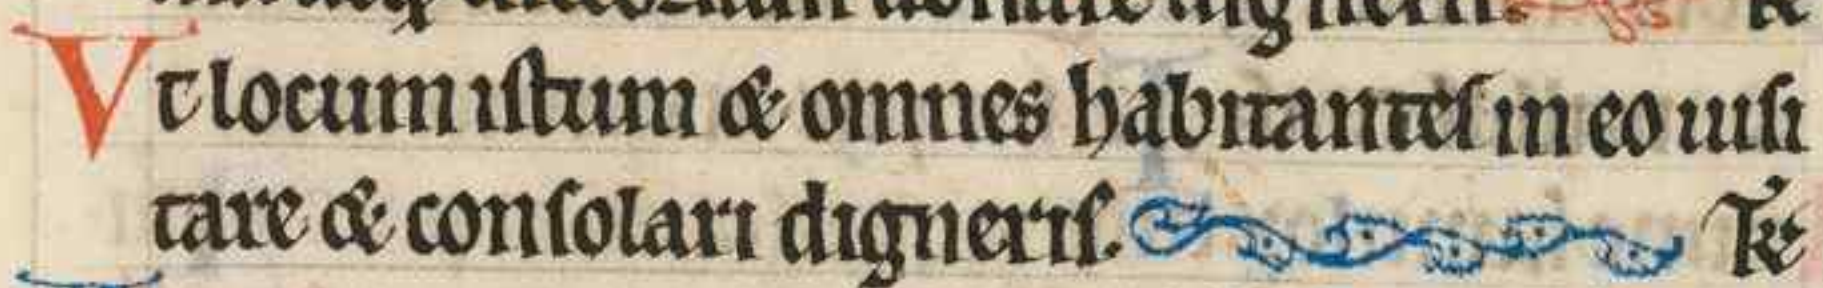 digneris. R
Vt locum istum & omnes habitantes in eo uisi
tare & consolari digneris. R